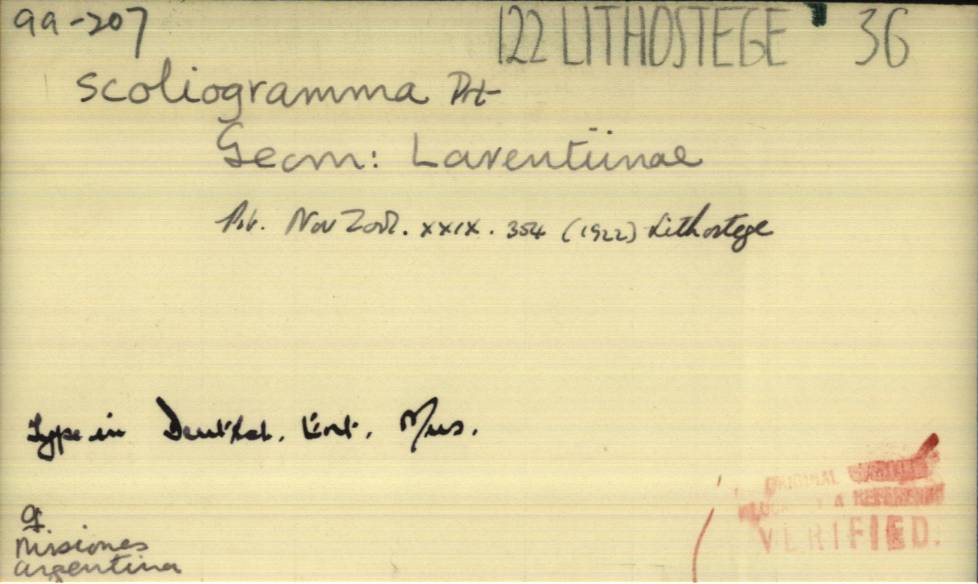 99-207
122 LITHOSTEGE 36
scoliogramma Prt
Geom: Larentiinae
Nov Zool. XXIX. 354 (1922) Lithostege
Type in Deutsch. Ent. Mus.
Misiones
Argentina
ORIGINAL
& REFERENCE
VERIFIED.